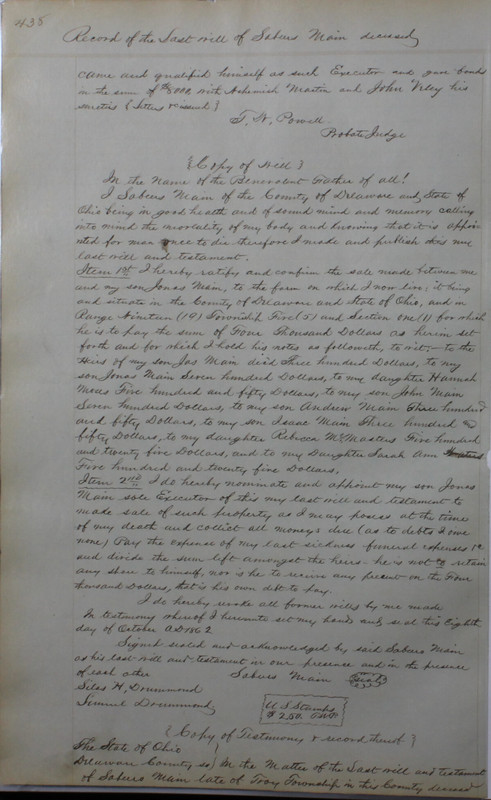 438
Record of the Last will of Sabeers Main deceased
came and qualified himself as such Executor and gave bonds
in the sum of $8000, with Nehemiah Martin and John Riley his
sureties {Letters issued}
T. W. Powell
Probate Judge
{Copy of Will}
In the Name of the Benevolent Father of all!
I Sabeers Main of the County of Delaware and State of
Ohio being in good health and of sound mind and memory calling
into mind the mortality of my body and knowing that it is appoin
nted for man once to die therefore I made and publish this my
last will and testament.
Item 1st I hereby ratify and confirm the sale made between me
and my son Jonas Main, to the farm on which I now live, it being
and situate in the County of Delaware and State of Ohio, and in
Range Nineteen (19) Township Five (5) and Section one (1) for which
he is to pay the sum of Four Thousand Dollars as herein set
forth and for which I hold his notes as followeth, to wit, - to the
Heirs of my son Jas Main died Three hundred Dollars, to my
son Jonas Main Seven hundred Dollars, to my daughter Hannah
Means Five hundred and fifty Dollars, to my son John Main
Seven hundred Dollars, to my son Andrew Main Three hundred
and fifty Dollars, to my son Isaac Main Three hundred &
fifty Dollars, to my daughter Rebecca McMasters Five hundred
and twenty five Dollars, and to my Daughter Sarah Ann
Five hundred and twenty five Dollars.
Item 2nd I do hereby nominate and appoint my son Jonas
Main sole Executor of this my last will and testament to
make sale of such property as I may posses at the time
of my death and collect all moneys due (as to debts I owe
none) Pay the expense of my last sickness - funeral expenses &c
and divide the sum left amongst the heirs - he is not to retain
any share to himself, nor is he to receive any present on the Four
thousand Dollars, that is his own debt to pay.
I do hereby revoke all former wills by me made
In testimony whereof I hereunto set my hand and seal this Eighth
day of October A D 1862
Signed sealed and acknowledged by said Sabeers Main
as his last will and testament in our presence and in the presence
of each other Sabeers Main {Seal}
Silas H. Drummond
Samuel Drummond
U. S Stamps
$2.50.
{Copy of Testimony & record thereof}
The State of Ohio
Delaware County ss} In the Matter of the Last will and testament
of Sabeers Main late of Troy Township in this County deceased